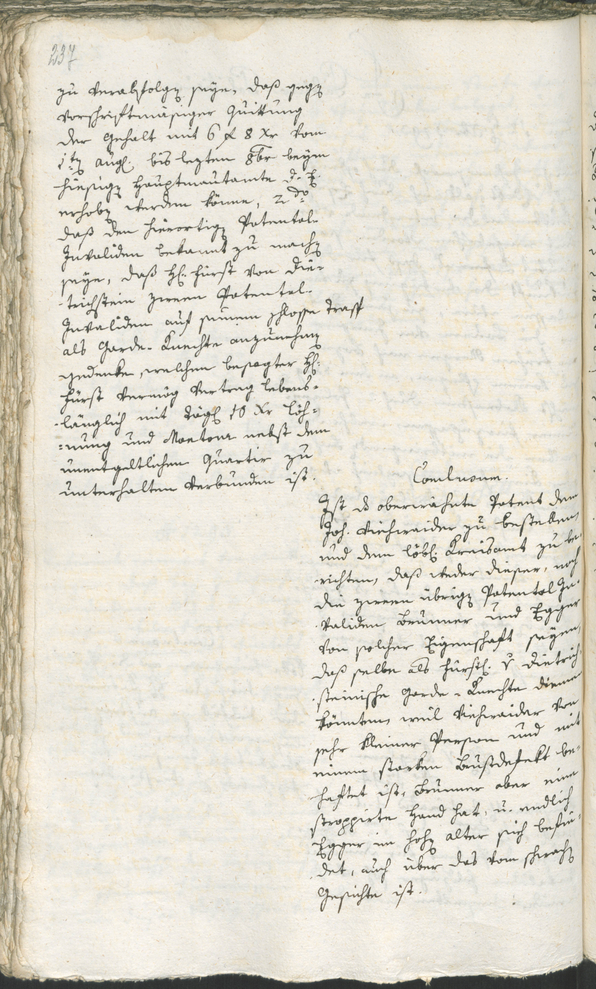 237
zu verabfolgen seye, daß gegen
vorschriftmäsiger Quittung
der Gehalt mit 6 f 8 Xr vom
1ten aug. bis lezten 8br beym
hiesigen Hauptmautamte
erhoben werden könne, 2do
daß den hierortigen Patental-
Invaliden bekannt zu machen
seye, daß H. Fürst von Die-
trichstein zween Patental-
Invaliden auf seinem Schlosse Trasp
als Garde-Knechte anzunehmen
gedenke, welchen besagter H.
Fürst vermög Vertrag lebens-
länglich mit tägl. 10 Xr Löh-
nung und Montour nebst dem
unentgeltlichen Quartir zu
unterhalten verbunden ist.
Conclusum.
Ist das oberwähnte Patent dem
Joh. Viehweider zu bestellen
und dem löbl. Kreisamt zu be-
richten, daß weder dieser, noch
die zween übrigen Patental In-
validen Brunner und Egger
von solcher Eigenschaft seyen,
daß selbe als Fürstl. v. Dietrich-
steinische Garde-Knechte dienen
könnten, weil Viehweider von
sehr kleiner Person und mit
einem starken Brustdefekt be-
haftet ist, Brunner aber eine
stroppirte Hand hat, u. endlich
Egger im hohen alter sich befin-
det, auch über das vom schwachen
Gesichte ist.